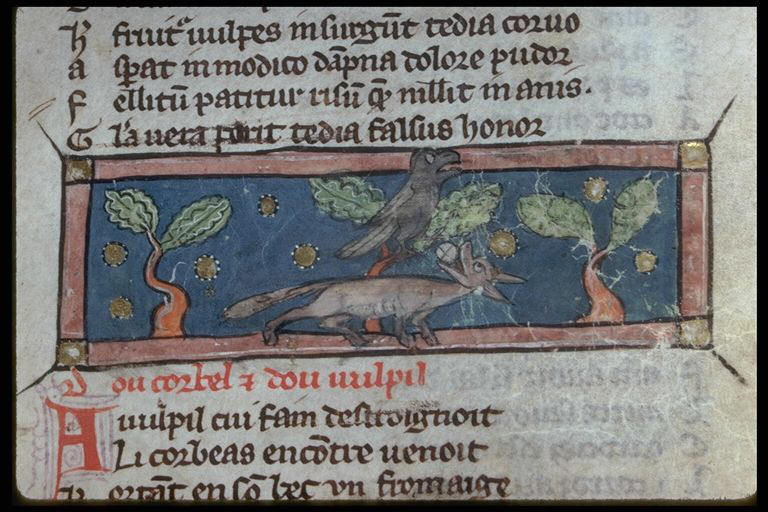 h fruit᷑ uulpes insurgūt tedia coruo
a spat in modico dāpna dolore pudor
f ellitū patitur risū q̄ mllit in amis.
G la uera parit tedia falsus honor
D ou corbel ⁊ dou uulpil
A uulpil cui fain destroignoit
Li corbeas encōtre uenoit
P ortāt en sō bec vn fromaige